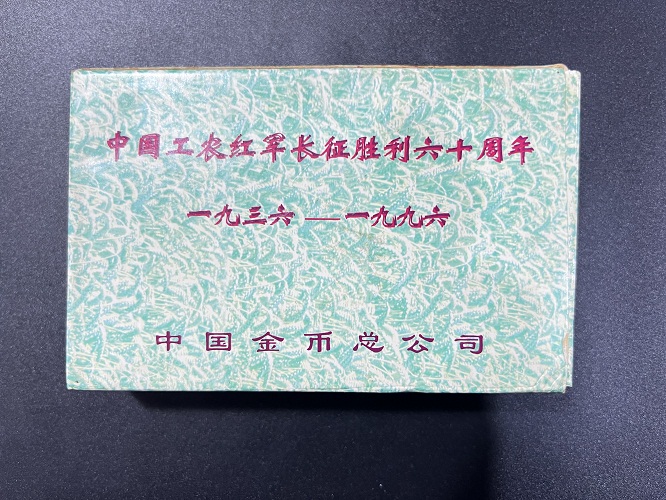 中国工农红军长征胜利六十周年
一九三六—一九九六
中国金币总公司